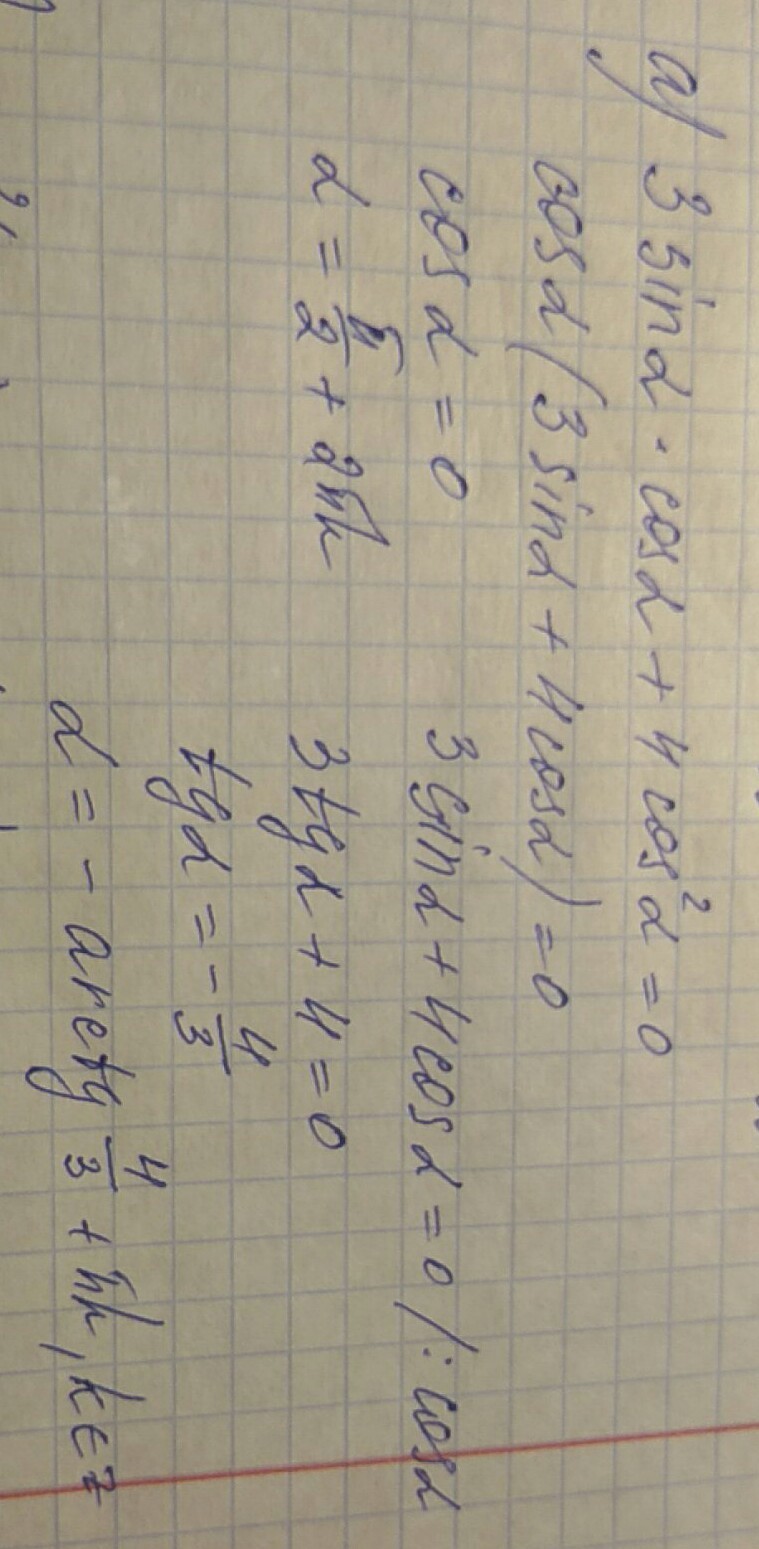 а) 3 sin α · cos α + 4 cos² α = 0
cos α (3 sin α + 4 cos α) = 0
cos α = 0 3 sin α + 4 cos α = 0 /: cos α
α = π/2 + 2πk 3 tg α + 4 = 0
tg α = - 4/3
α = - arctg 4/3 + πk, k ∈ Z